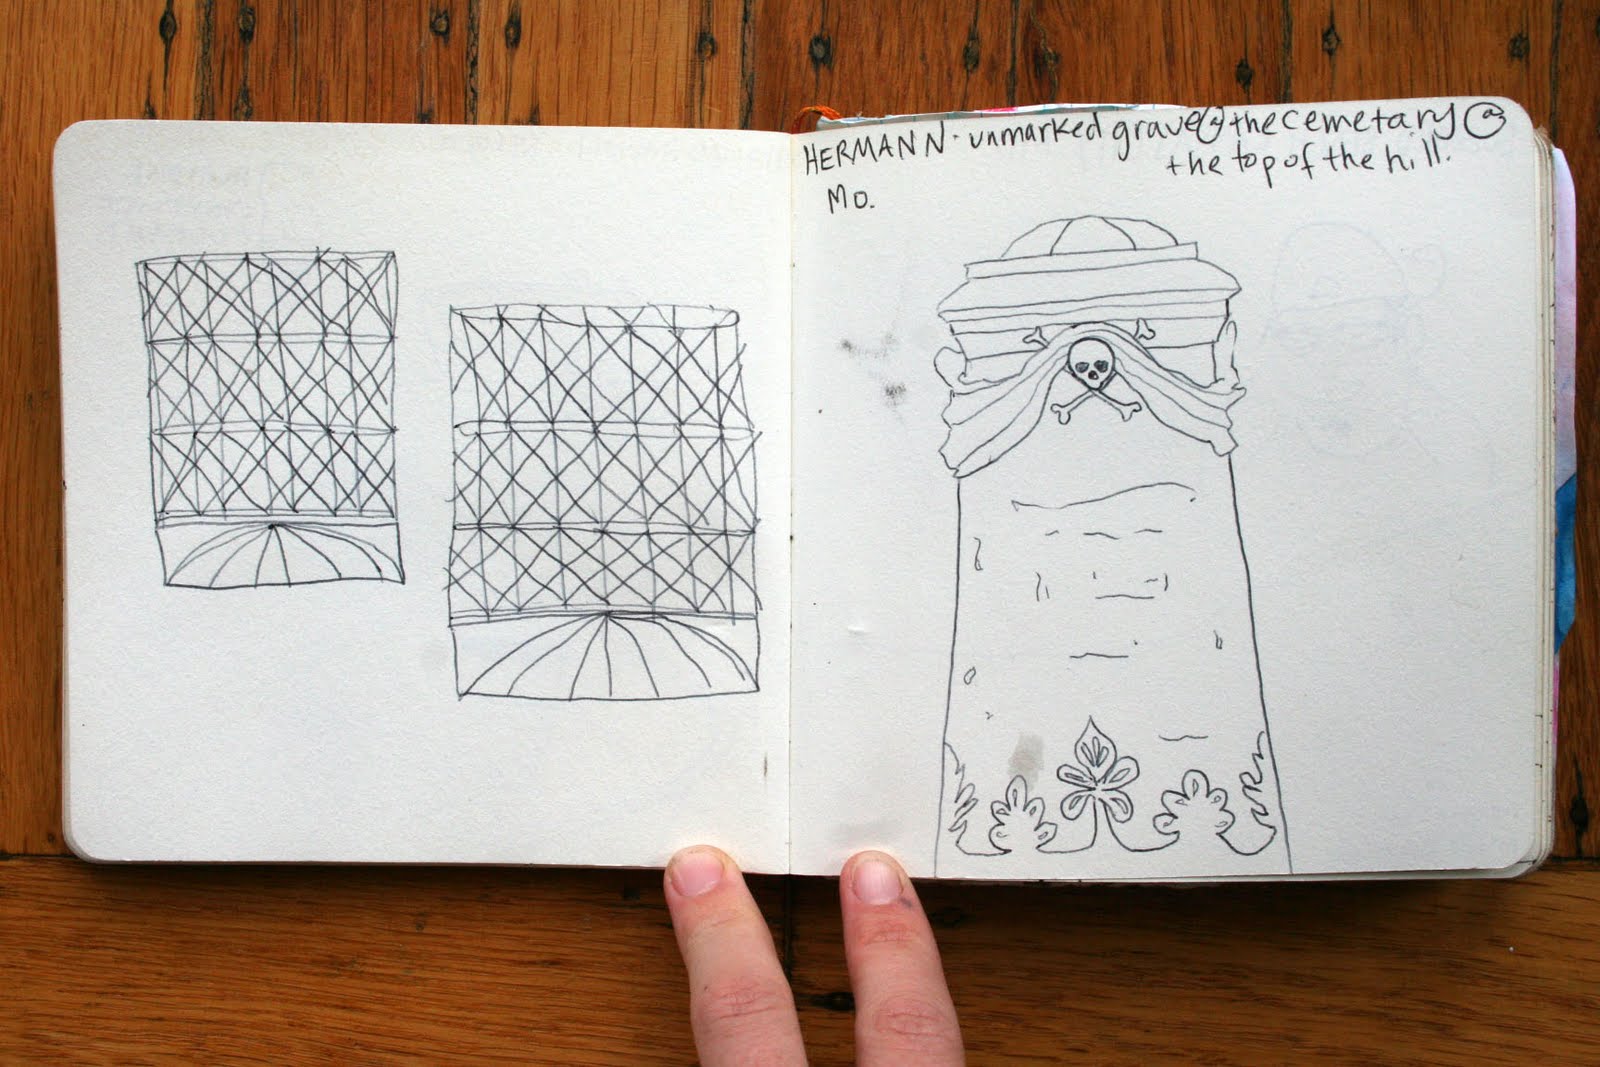 HERMANN - unmarked grave @ the cemetary @
the top of the hill.
Mo.